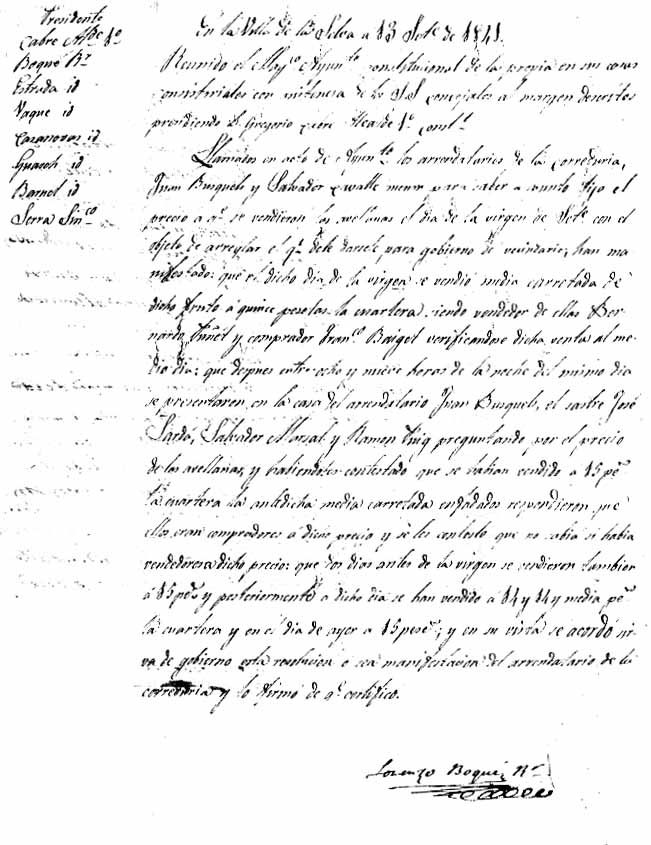 Presidente
Cabre Alde 1º
Boqué Rr
Estrada id
Vaque id
Casanovas id
Guasch id
Bornel id
Serra Sinco
En la Villa de la Selva a 13 Sete de 1841.
Reunido el Magco Ayunto constitucional de la propia en sus casas
consistoriales con asistencia de los SS concejales al margen descritos
prendiendo D. Gregorio Cabre Alcalde 1º constl
Llamados en acto de Ayunto los arrendatarios de la correduria,
Juan Busquets y Salvador menor para saber a cuanto fijo el
precio a q. se vendieron las avellanas el dia de la virgen de Sete con el
objeto de arreglar el q. debe darsele para gobierno de vecindario; han ma-
nifestado: que el dicho dia de la virgen se vendió media carretada de
dicho fruto a quince pesetas la cuartera siendo vendedor de ellas Ber-
nardo y comprador Franco Baiget verificandose dicha venta al me-
dio dia: que despues entre ocho y nueve horas de la noche del mismo dia
se presentaron en la casa del arrendatario Juan Busquets, el sastre José
Sardá, Salvador Marsal y Ramon Puig preguntando por el precio
de las avellanas, y habiendoles contestado que se habian vendido a 15 pes
la cuartera la antedicha media carretada enfadados respondieron que
ellos eran compradores á dicho precio y se les contesto que no sabia si habia
vendedores a dicho precio: que dos dias antes de la virgen se vendieron tambien
á 15 pes y posteriormente a dicho dia se han vendido á 14 y 14 y media pes
la cuartera y en el dia de ayer a 15 peses; y en su vista se acordó sir-
va de gobierno esta resolucion o sea manifestacion del arrendatario de la
correduria y lo firmó de q. certifico.
Lorenzo Boqué Rr